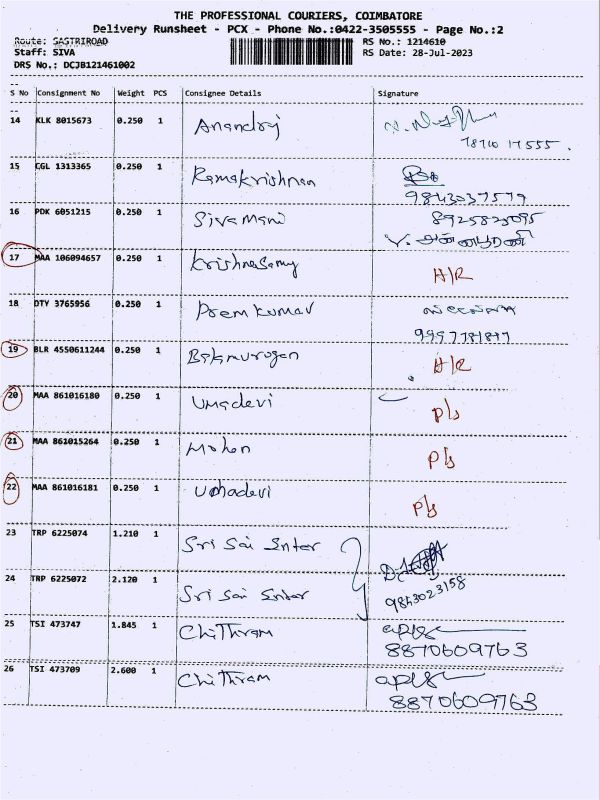 THE PROFESSIONAL COURIERS, COIMBATORE
Delivery Runsheet - PCX - Phone No.:0422-3505555 - Page No.:2
Route: SASTRIROAD RS No.: 1214610
Staff: SIVA RS Date: 28-Jul-2023
DRS No.: DCJB121461002
S No Consignment No Weight PCS Consignee Details Signature
14 KLK 8015673 0.250 1 Anandraj
78710 17555.
15 CGL 1313365 0.250 1 Ramakrishnan
9843037579
16 PDK 6051215 0.250 1 Sivamani 8925823095
V. அன்னபூரணி
17 MAA 106094657 0.250 1 Krishnasamy H/R
18 DTY 3765956 0.250 1 Prem kumar
19 BLR 4550611244 0.250 1 Balamurugan H/R
20 MAA 861016180 0.250 1 Umadevi P/s
21 MAA 861015264 0.250 1 Mohan P/s
22 MAA 861016181 0.250 1 Umadevi P/s
23 TRP 6225074 1.210 1 Sri Sai Enter
24 TRP 6225072 2.120 1 Sri Sai Enter 9843023158
25 TSI 473747 1.845 1 Chithram
8870609763
26 TSI 473709 2.600 1 Chithram
8870609763